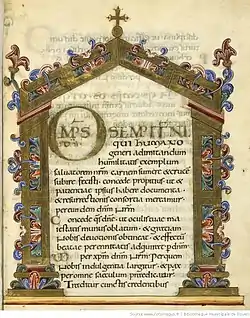 OMPS SEMPITNE
DS qui humano
generi adimitandum
humilitatis exemplum
saluatorem nrm carnem sumere & cruce
subire fecisti, concede propitius ut et
patientiae ipsius habere documenta
& resurrectionis consortia mereamur
per eundem dnm nrm.
Concede qs dne ut oculis tuae ma
iestatis munus oblatum & gratiam
nobis deuotionis obtineat & effectu
beatae perennitatis adquirat p dnm
per xpm dnm nrm. Per quem
nobis indulgentia largitur & pax
per omne saeculum praedicatur
Traditur cunctis credentibus
Bibliothèque municipale de Rouen